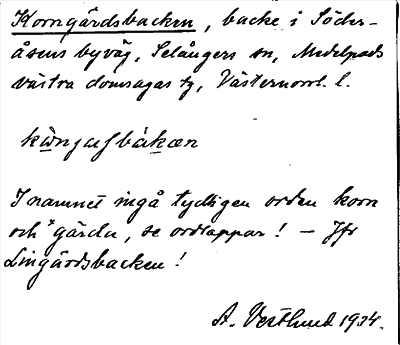 Korngärdsbacken, backe i Söder-
åsens byväg, Selångers sn, Medelpads
västra domsagas tg, Västernorrl. l.
I namnet ingå tydligen orden korn
och *gärda, se ordlappar! — Jfr
Lingärdsbacken!
A. Vestlund 1934.